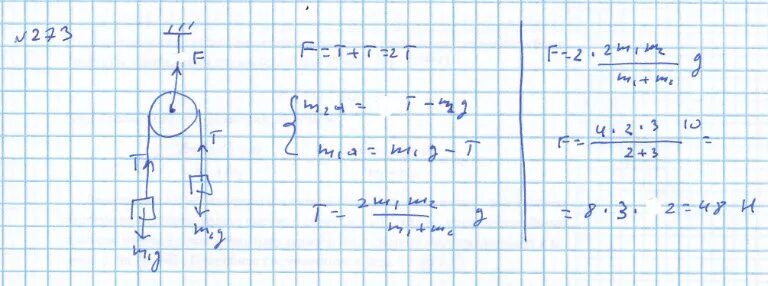 №273
F
T
T
m₁g
m₂g
F=T+T=2T
{ m₂a = T-m₂g
m₁a = m₁g-T
T = 2m₁m₂ / m₁+m₂ g
F=2· 2m₁m₂ / m₁+m₂ g
F= 4·2·3 10 / 2+3 =
= 8·3· 2=48 Н